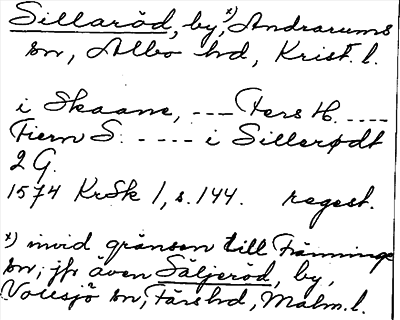 Sillaröd, by,ˣ⁾ Andrarums
sn, Albo hd, Krist. l.
i Skaane, --- Fers H. ----
Fiern S. ---- i Sillerødt
2 G.
1574 KrSk 1, s. 144. regest.
x) invid gränsen till Tranninge
sn; jfr även Säljeröd, by,
Vollsjö sn, Färs hd, Malm. l.